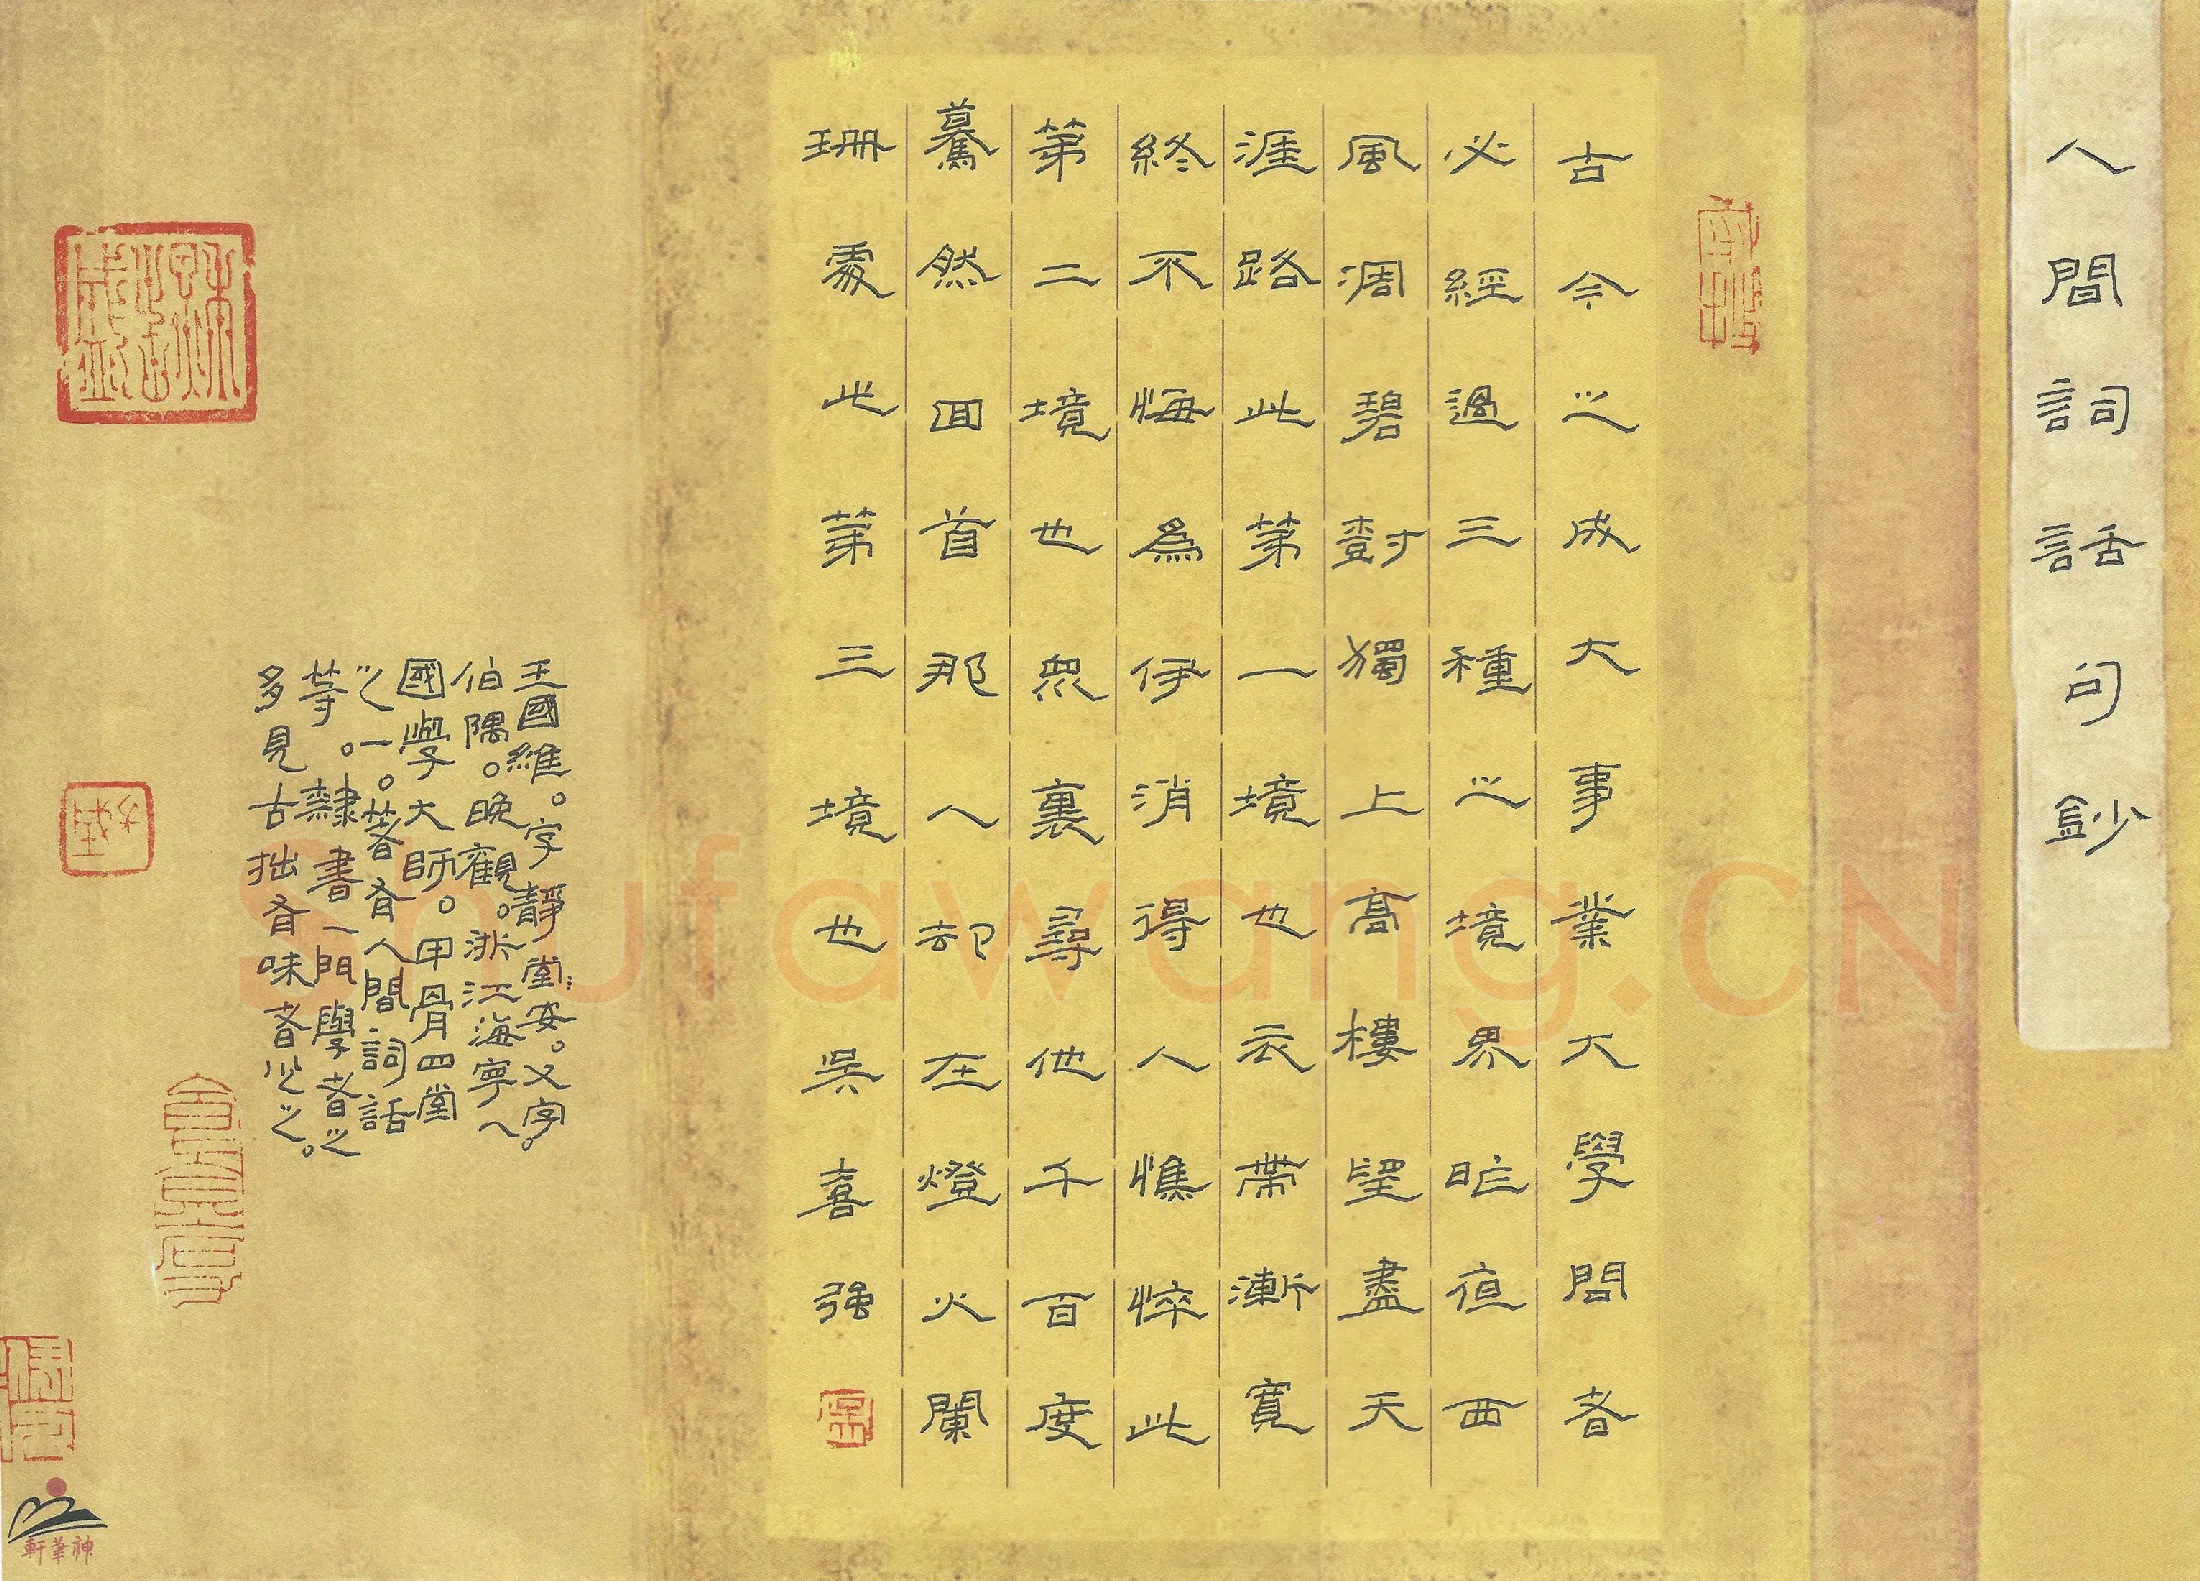 人間詞話句鈔
古今之成大事業大學問者
必經過三種之境界昨夜西
風凋碧對獨上高樓望盡天
涯路此第一境也衣帶漸寬
終不悔為伊消得人憔悴此
第二境也眾裏尋他千百度
驀然回首那人却在燈火闌
珊處此第三境也吳喜强
王國維。字靜堂:安。又字。
伯隅。晚觀。浙江海寧人
國學大師。甲骨四堂
之一。著有人間詞話
等。隸書一門學者之
多見古拙有味者少之。
神筆軒
Shufawang.CN